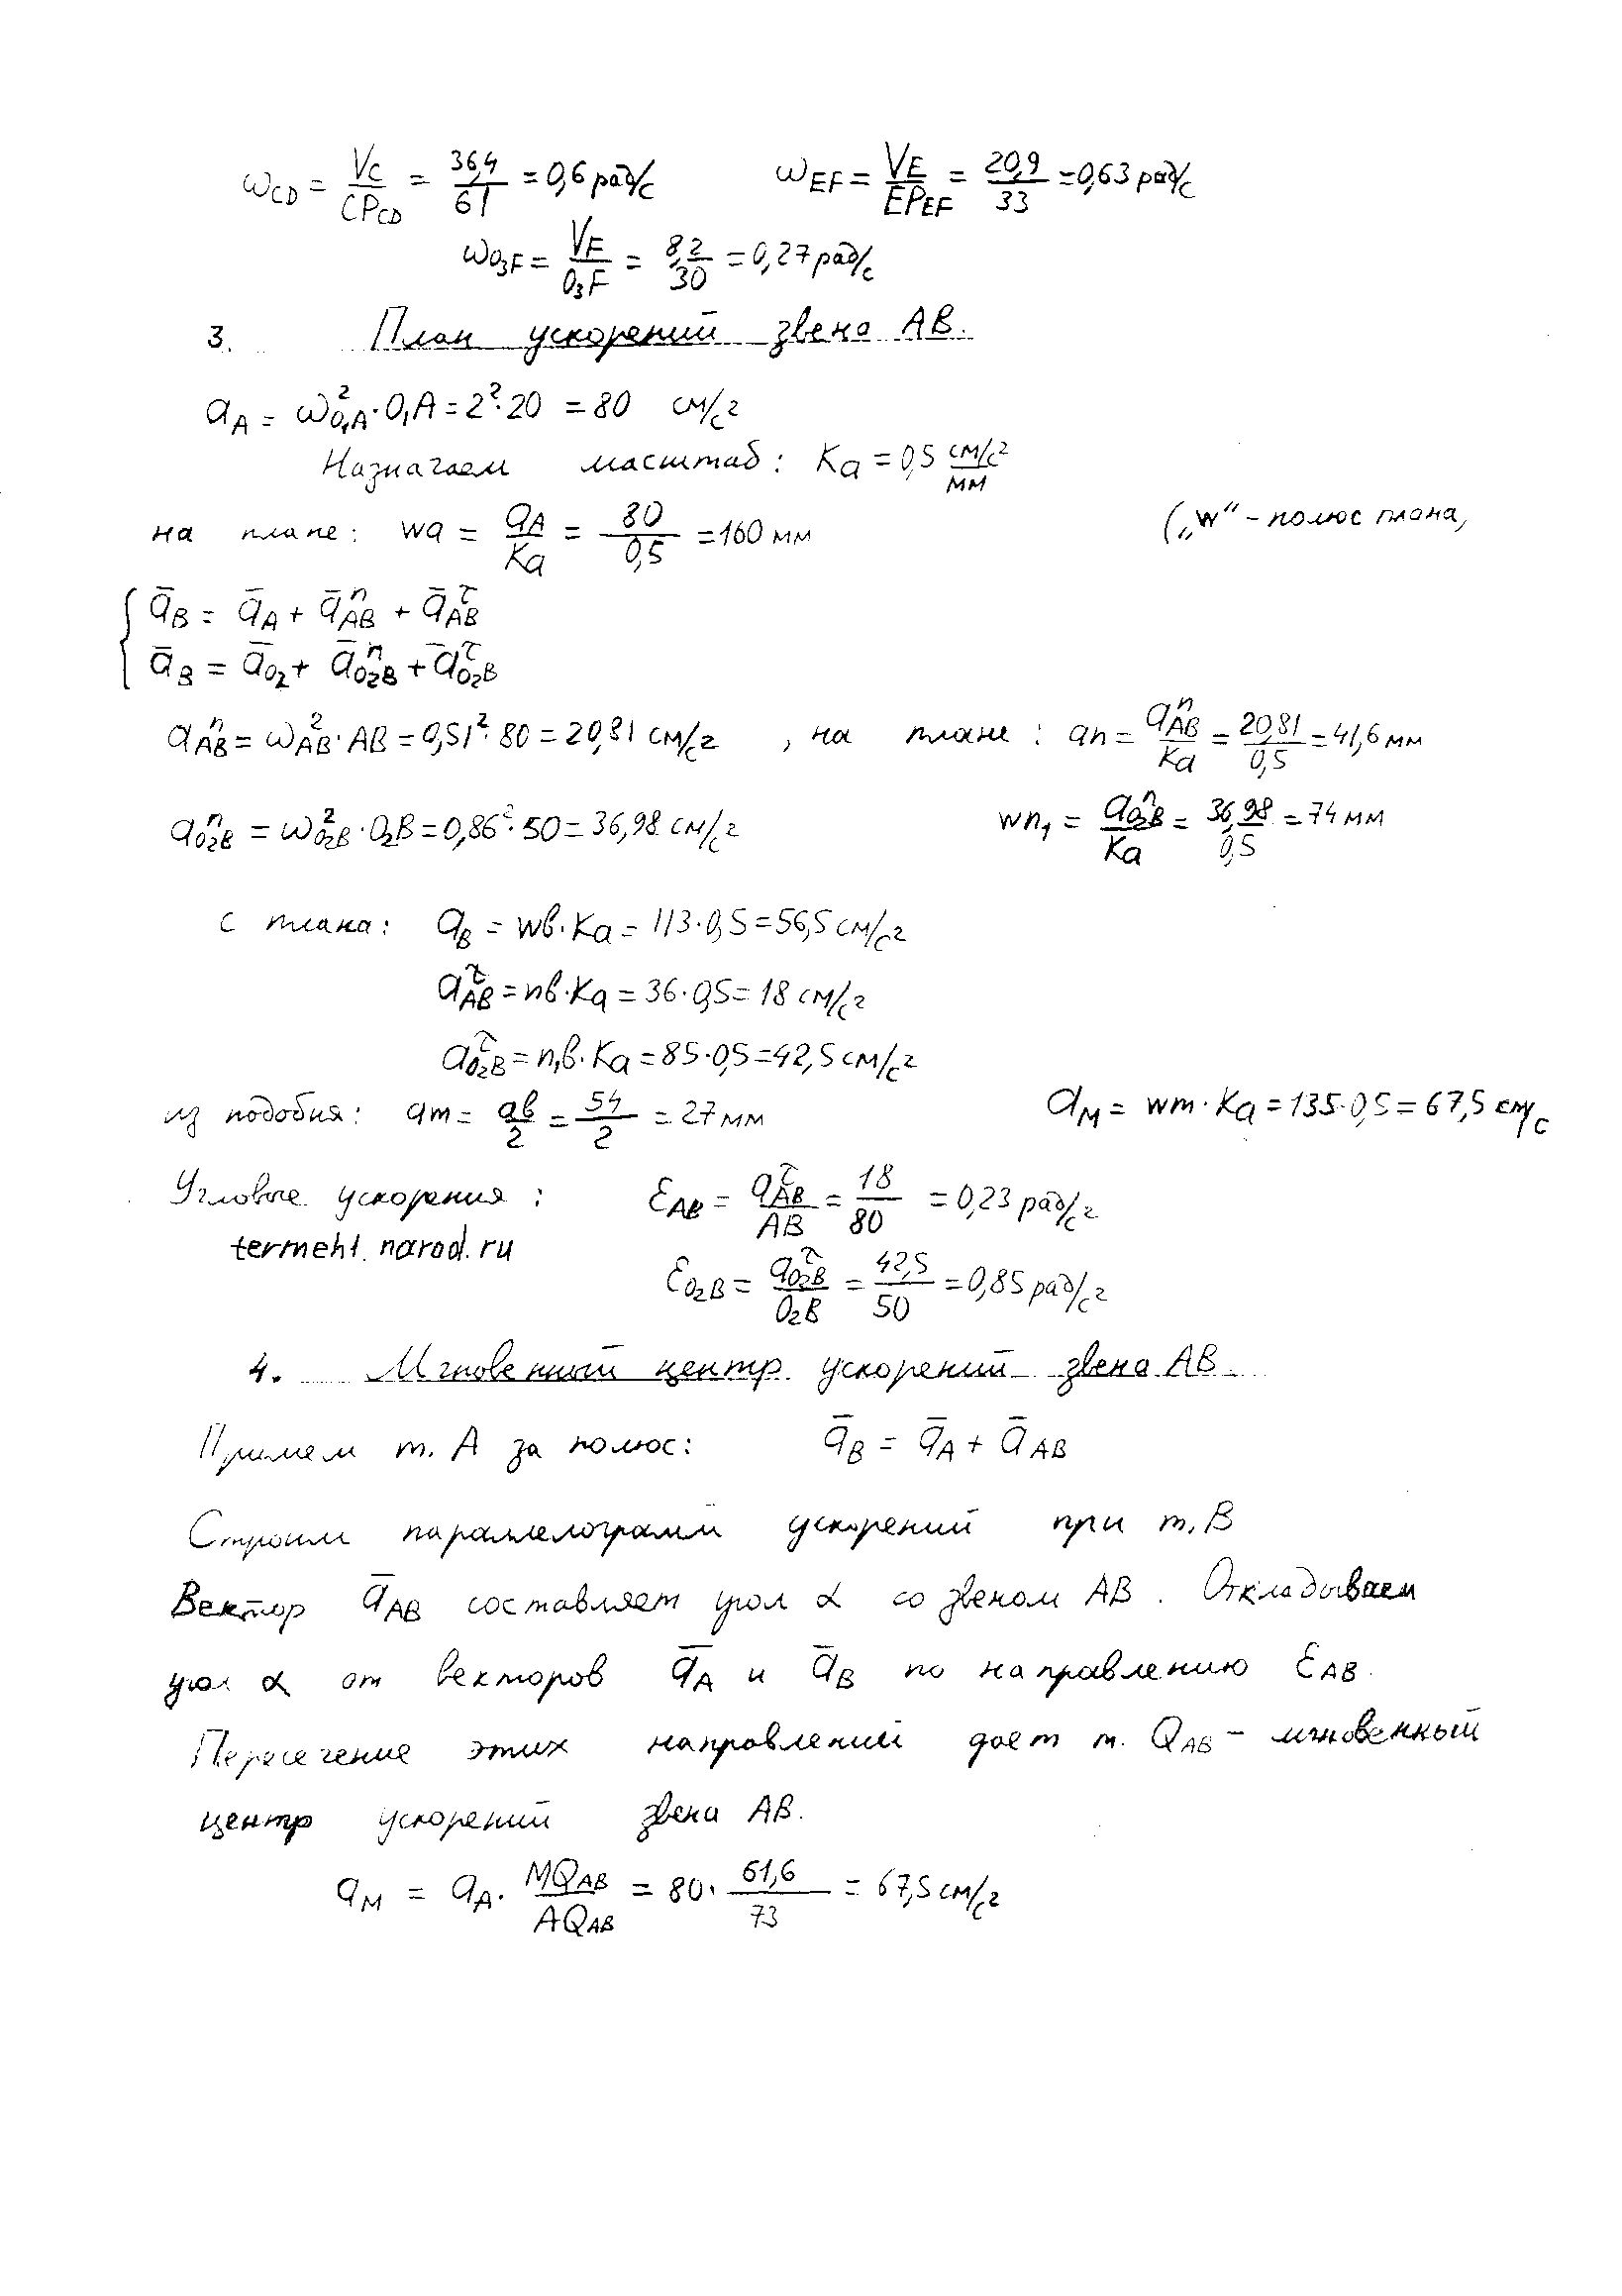 ω_CD = V_C / CP_CD = 36,4 / 61 = 0,6 рад/с   ω_EF = V_E / EP_EF = 20,9 / 33 = 0,63 рад/с
ω_O₃F = V_F / O₃F = 8,2 / 30 = 0,27 рад/с
3. План ускорений звена AB.
a_A = ω²_O₁A · O₁A = 2² · 20 = 80 см/с²
Назначаем масштаб: Ka = 0,5 см/с² / мм
на плане: wa = a_A / Ka = 80 / 0,5 = 160 мм   („w" - полюс плана,
{ ā_B = ā_A + ā^n_AB + ā^τ_AB
ā_B = ā_O₂ + ā^n_O₂B + ā^τ_O₂B
a^n_AB = ω²_AB · AB = 0,51² · 80 = 20,81 см/с² , на плане: an = a^n_AB / Ka = 20,81 / 0,5 = 41,6 мм
a^n_O₂B = ω²_O₂B · O₂B = 0,86² · 50 = 36,98 см/с²   wn₁ = a^n_O₂B / Ka = 36,98 / 0,5 = 74 мм
с плана: a_B = wв · Ka = 113 · 0,5 = 56,5 см/с²
a^τ_AB = nв · Ka = 36 · 0,5 = 18 см/с²
a^τ_O₂B = n₁в · Ka = 85 · 0,5 = 42,5 см/с²
из подобия: am = aв / 2 = 54 / 2 = 27 мм   a_M = wm · Ka = 135 · 0,5 = 67,5 см/с
Угловые ускорения: ε_AB = a^τ_AB / AB = 18 / 80 = 0,23 рад/с²
termeh1.narod.ru
ε_O₂B = a^τ_O₂B / O₂B = 42,5 / 50 = 0,85 рад/с²
4. Мгновенный центр ускорений звена AB.
Примем т. A за полюс: ā_B = ā_A + ā_AB
Строим параллелограмм ускорений при т. B
Вектор ā_AB составляет угол α со звеном AB. Откладываем
угол α от векторов ā_A и ā_B по направлению ε_AB.
Пересечение этих направлений дает т. Q_AB - мгновенный
центр ускорений звена AB.
a_M = a_A · MQ_AB / AQ_AB = 80 · 61,6 / 73 = 67,5 см/с²